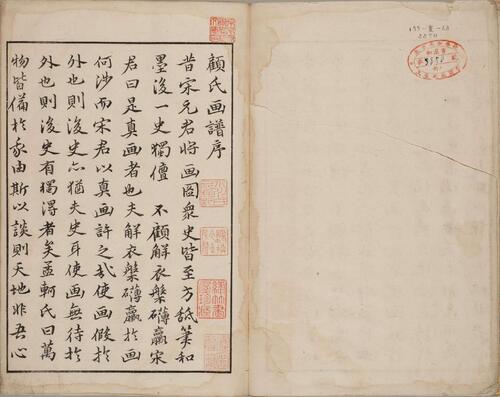 顧氏画譜序
昔宋元君將画圖衆史皆至方舐筆和
墨後一史獨儃　不顧解衣槃礴臝宋
君曰是真画者也夫解衣槃礴臝於画
何涉而宋君以真画許之哉使画假於
外也則後史亦猶夫史耳使画無待於
外也則後史有獨得者矣孟軻氏曰萬
物皆備於我由斯以談則天地非吾心